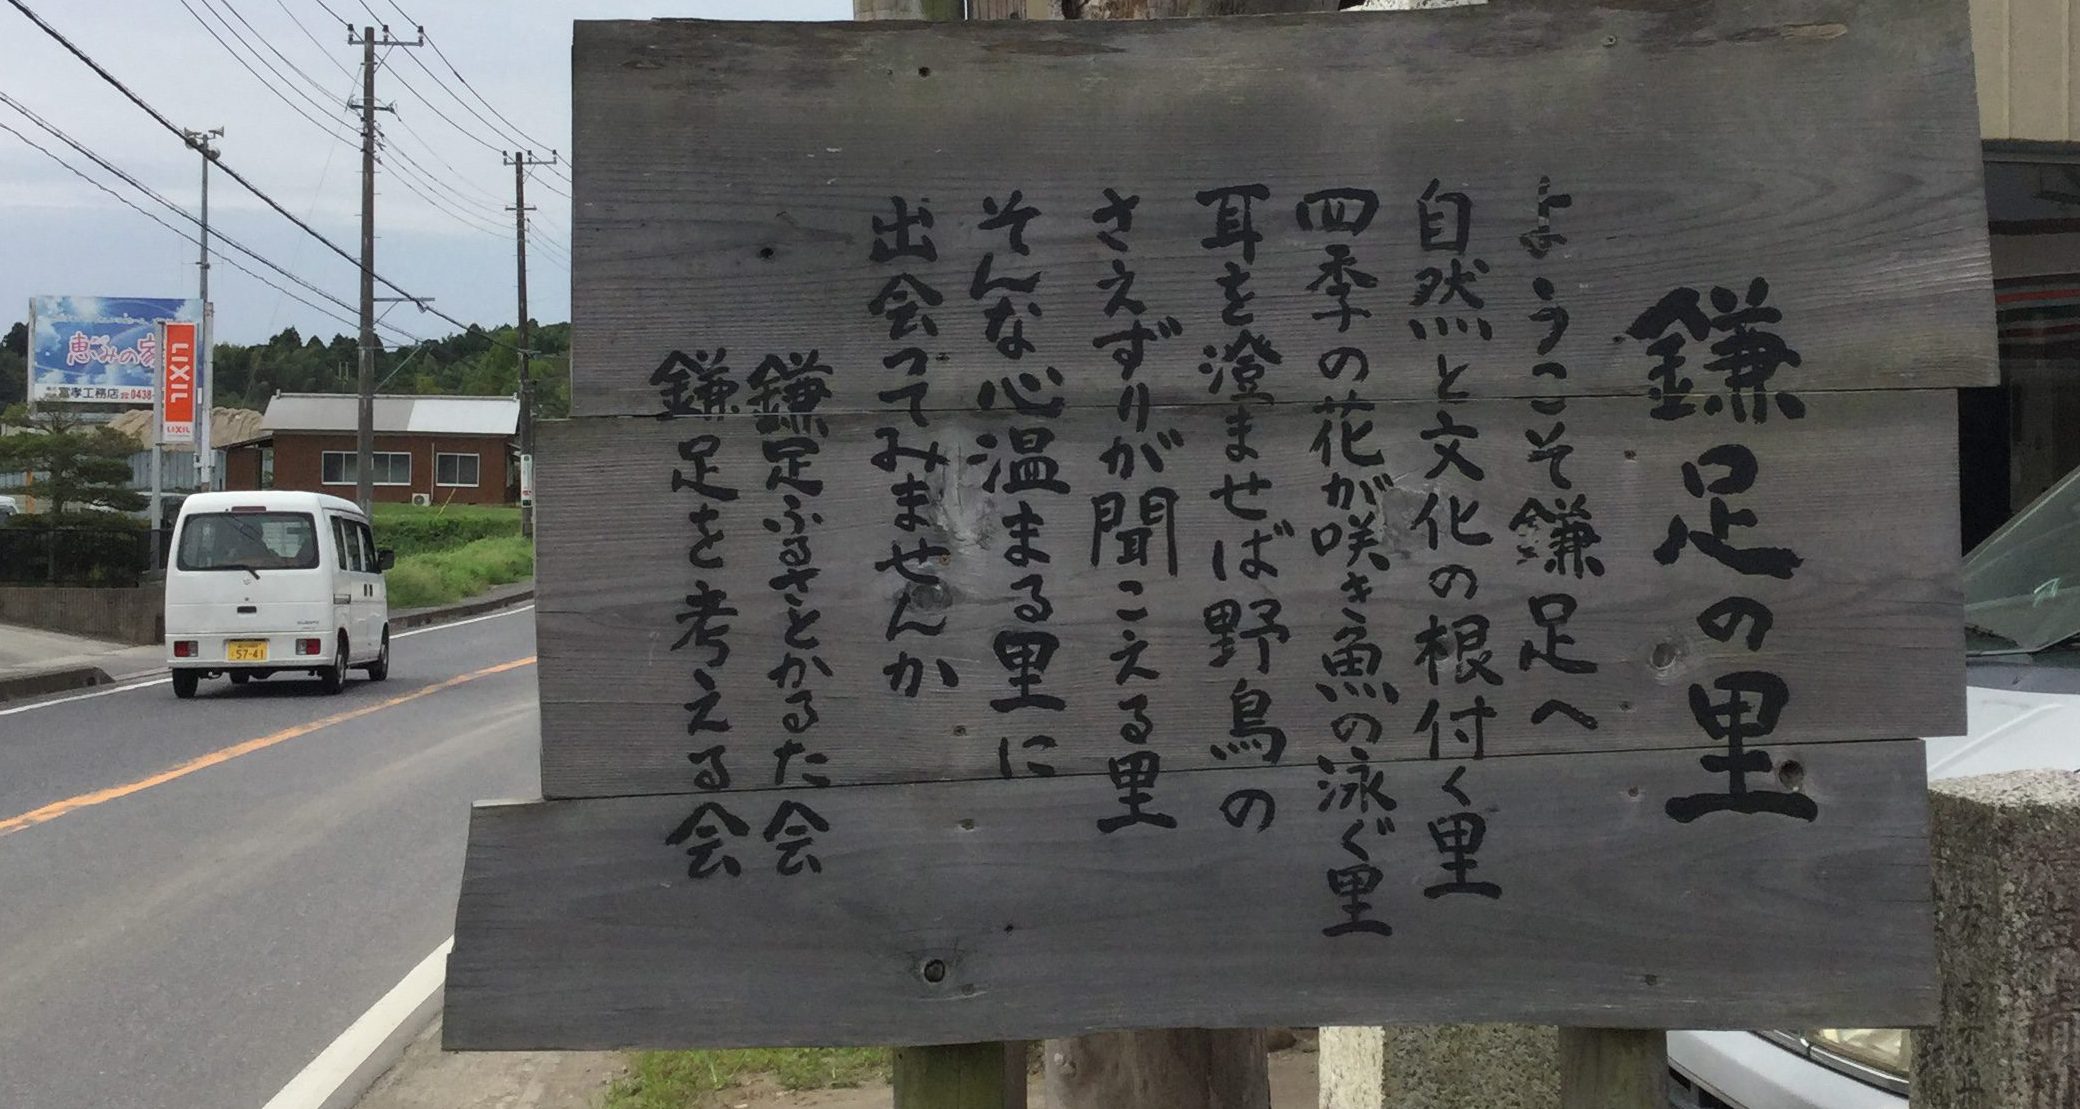 鎌足の里
ようこそ鎌足へ
自然と文化の根付く里
四季の花が咲き魚の泳ぐ里
耳を澄ませば野鳥の
さえずりが聞こえる里
そんな心温まる里に
出会ってみませんか
鎌足ふるさとかるた会
鎌足を考える会
恵みの家
富孝工務店
0438-
LIXIL
LIXIL
57-41